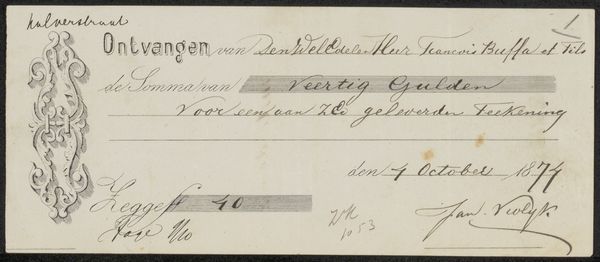 kalverstraat
1
Ontvangen van Den WelEdelen Heer Francois Buffa et Fils
de Somma van Veertig Gulden
Voor een aan ZEd geleverden Teekening
den 4 October 1874
Zegge ƒ 40
Jan Vrolyk
Hage